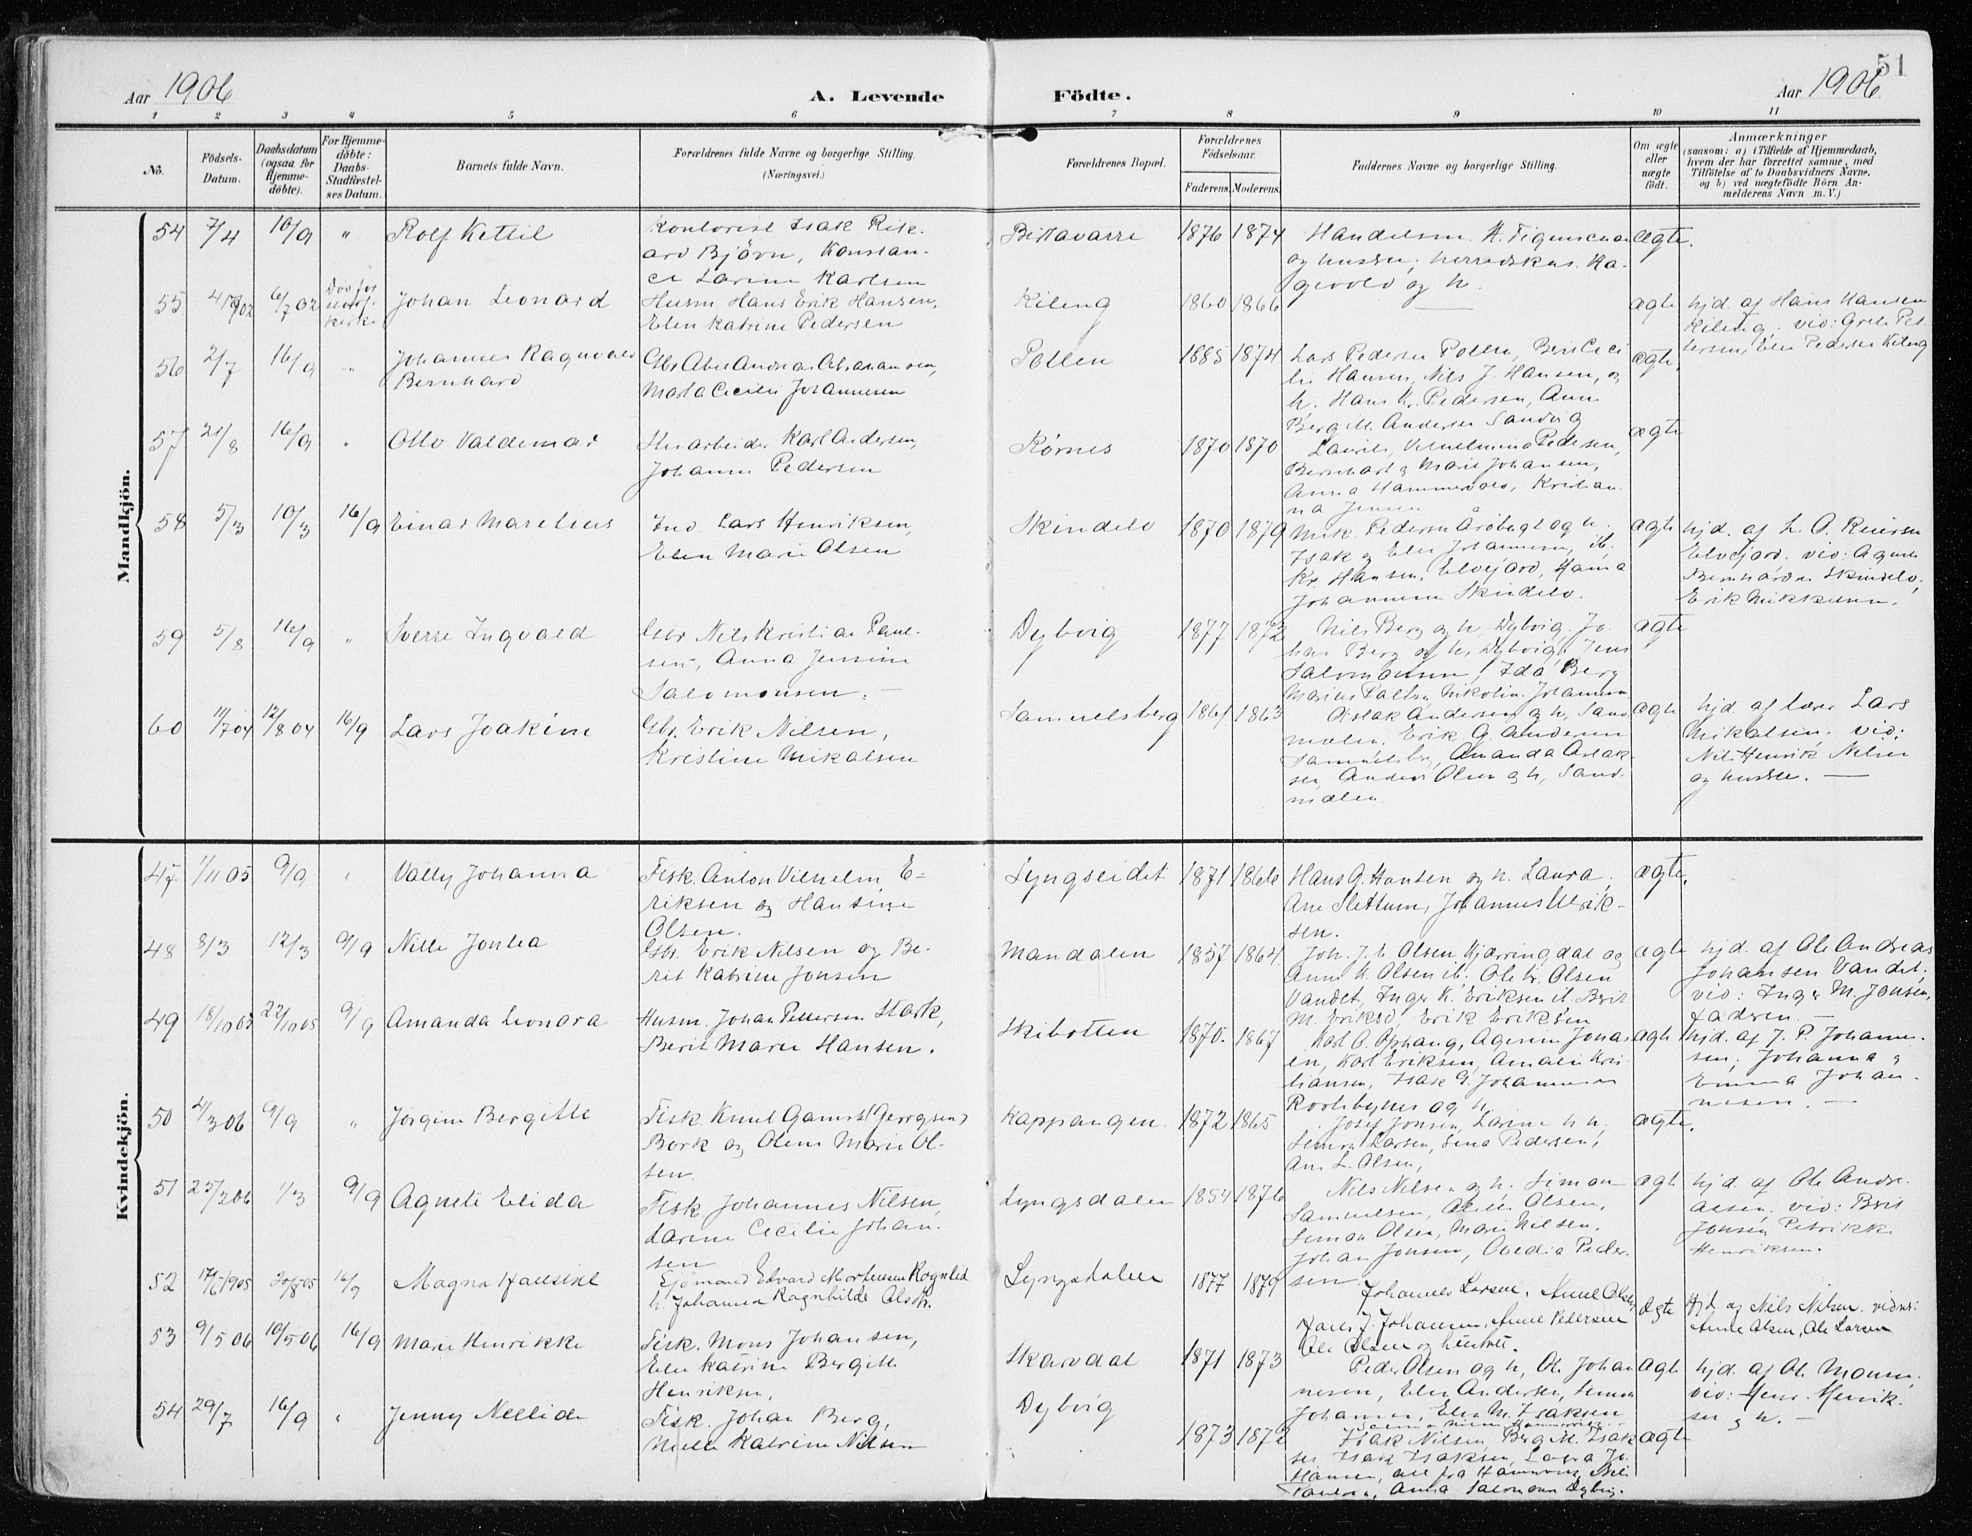 51
Aar 1906
A. Levende Födte.
Aar 1906
1 2 3 4 5 6 7 8 9 10 11
No.
Födsels-
Datum.
Daabsdatum
(ogsaa for
Hjemme-
döbte).
For Hjemme-
döbte:
Daabs-
Stadfæstel-
ses Datum.
Barnets fulde Navn.
Forældrenes fulde Navne og borgerlige Stilling.
(Næringsvei.)
Forældrenes Bopæl.
Forældrenes
Födselsaar.
Faderens. Moderens.
Faddernes Navne og borgerlige Stilling.
Om ægte
eller
uægte
födt.
Anmærkninger
(saasom: a) i Tilfælde af Hjemmedaab,
hvem der har forrettet samme, med
Tilföielse af to Daabsvidners Navne,
og b) ved uægtefödte Börn An-
melderens Navn m. V.)
Mandkjön.
54 7/4 16/9 " Rolf Kettil
Kontorist Isak Rik-
ard Bjørn, Konstan-
ce Larine Karlsen
Birtavarre 1876 1874
og hustru, herredskas.
og h.
ægte.
55 6/7 02 Johan Leonard
Husm. Hans Erik Hansen,
Elen Katrine Pedersen
Kileng 1860 1866 — ægte
hjd. af Hans Hansen
Kileng. vid: Grete Pe-
dersen, Elen Pedersen Kileng
56 2/7 16/9 " Johannes Ragnvald
Bernhard
Gbr Abel Andreas Abrahamsen,
Marta Cecilie Johannesen
Pollen 1885 1874
Lars Pedersen Pollen, Berit Ceci-
lie Hansen, Nils J. Hansen, og
h. Hans Kr. Pedersen, Anne
Bergitte Andersen Sandvig
ægte.
57 21/8 16/9 " Otto Valdemar
Stuearbeider Karl Andersen,
Johanne Pedersen
Kørnes 1870 1870
Laurits, Vilhelmine Pedersen,
Bernhart og Marie Johansen,
Anna Hammervold, Kristian-
na Jensen
ægte
58 5/3 10/3 16/9 Einar Marelius
Ind. Lars Henriksen,
Elen Marie Olsen
Skindelv 1870 1879
Mik. Pedersen Årøbugt og h.
Isak og Elen Johannesen, ib.
Kr. Hansen, Elvejord, Hanna
Johannesen Skindelv.
ægte
hjd. af L. O. Reiersen
Elvejord. vid: Agnes
Bernhardsen Skindelv,
Erik Mikkelsen.
59 5/8 16/9 " Sverre Ingvald
Gbr Nils Kristian Paul-
sen, Anna Jensine
Salomonsen. —
Dybvig 1877 1872
Nils Berg og h, Dybvig, Jo-
han Berg og h, Dybvig, Jens
Salomonsen, Ida Berg
ægte
60 11/7 04 12/8 04 16/9 Lars Joakim
Gbr. Erik Nilsen,
Kristine Mikalsen
Samuelsberg 1861 1863
Aslak Andersen og h, Sand-
melen. Erik G. Andersen
Samuelsbg, Amanda Aslak-
sen, Anders Olsen og h, Sand-
melen.
ægte
hjd af lærer Lars
Mikalsen. vid:
Nils Henrik Nilsen
og hustru. —
Kvindekjön.
47 1/11 05 9/9 " Vally Johanna
Fisk. Anton Vilhelm E-
riksen og Hansine
Olsen.
Lyngseidet 1871 1866
Hans G. Hansen og h. Laura,
Ane Slettum, Johannes Ulrik-
sen.
ægte.
48 8/3 12/3 9/9 Nille Jontea
Gbr. Erik Nilsen og Be-
rit Katrine Jonsen
Mandalen 1857 1864
Joh. J. L. Olsen Kjerringdal og
Anne K. Olsen ib, Ole Kr. Olsen
Vandet, Inger K. Eriksen ib. Berit
M. Eriksd, Erik Eriksen
ægte
hjd. af Ole Andreas
Johansen Vandet,
vid: Inger M. Jonsen,
faderen. —
49 18/10 05 22/10 05 9/9 Amanda Leonora
Husm. Johan Pettersen Stark,
Berit Marie Hansen.
Skibotten 1870. 1867
Karl O. Ophaug, Agenin Jonas-
en, Karl Eriksen, Amalie Kris-
tiansen, Isak G. Johannesen
og h.
ægte
hjd. af J. P. Johanne-
sen, Johanna og
Emma Johan-
nesen. —
50 4/3 06 9/9 " Jørgine Bergitte
Fisk. Knut Gamst (Jørgensen)
Bork og Oline Marie Ol-
sen.
Kappangen. 1872 1865
Josef Jonsen, Larine h h,
Simon Larsen, Sina Pedersen,
Ane L. Olsen,
ægte.
51 25/2 06 1/3 9/9 Agnete Elida
Fisk Johannes Nilsen,
Larine Cecilie Johan-
sen
Lyngsdalen 1854 1876
Nils Nilsen og h. Simon
Samuelsen, Olsen,
Simon Olsen, Marie Nilsen,
Johan Jonsen, Ovedia Peder-
sen
ægte
hjd. af Ole Andre-
assen, vid: Brit
Jonsen, Petrikke
Henriksen.
52 17/6 1905 20/8 05 16/9 Magna Hansine
Sjømand Edvard Mortensen Rognlid
h. Johanna Ragnhilde Olsdtr.
Lyngsdalen 1877 1879
Johannes Larsen, Anne Olsen,
Hans J. Johansen, Anne Petersen
Ole Olsen og hustru.
ægte
Hjd. af Nils Nilsen. vidner:
Anne Olsen, Ole Larsen
53 9/5 06 10/5 06 16/9 Marie Henrikke
Fisk. Mons Johansen,
Elen Katrine Bergitte
Henriksen,
Skarvdal 1871 1873
Peder Olsen og h, Ole Johan-
nesen, Elen Andersen, Simon
Johansen, Elen M. Isaksen
ægte
hjd. af Ole Monsen,
vid: Henr. Henrik-
sen og h. —
54 29/7 16/9 " Jenny Nellide
Fisk. Johan Berg,
Nille Katrine Nilsen
Dybvig 1873 1872
Isak Nilsen, Bergitte M. Isak-
sen, Isak Isaksen, Laura Jo-
hansen, alle fra Hamnnes, Nils
Paulsen, Anna Salomonsen Dybvig.
ægte